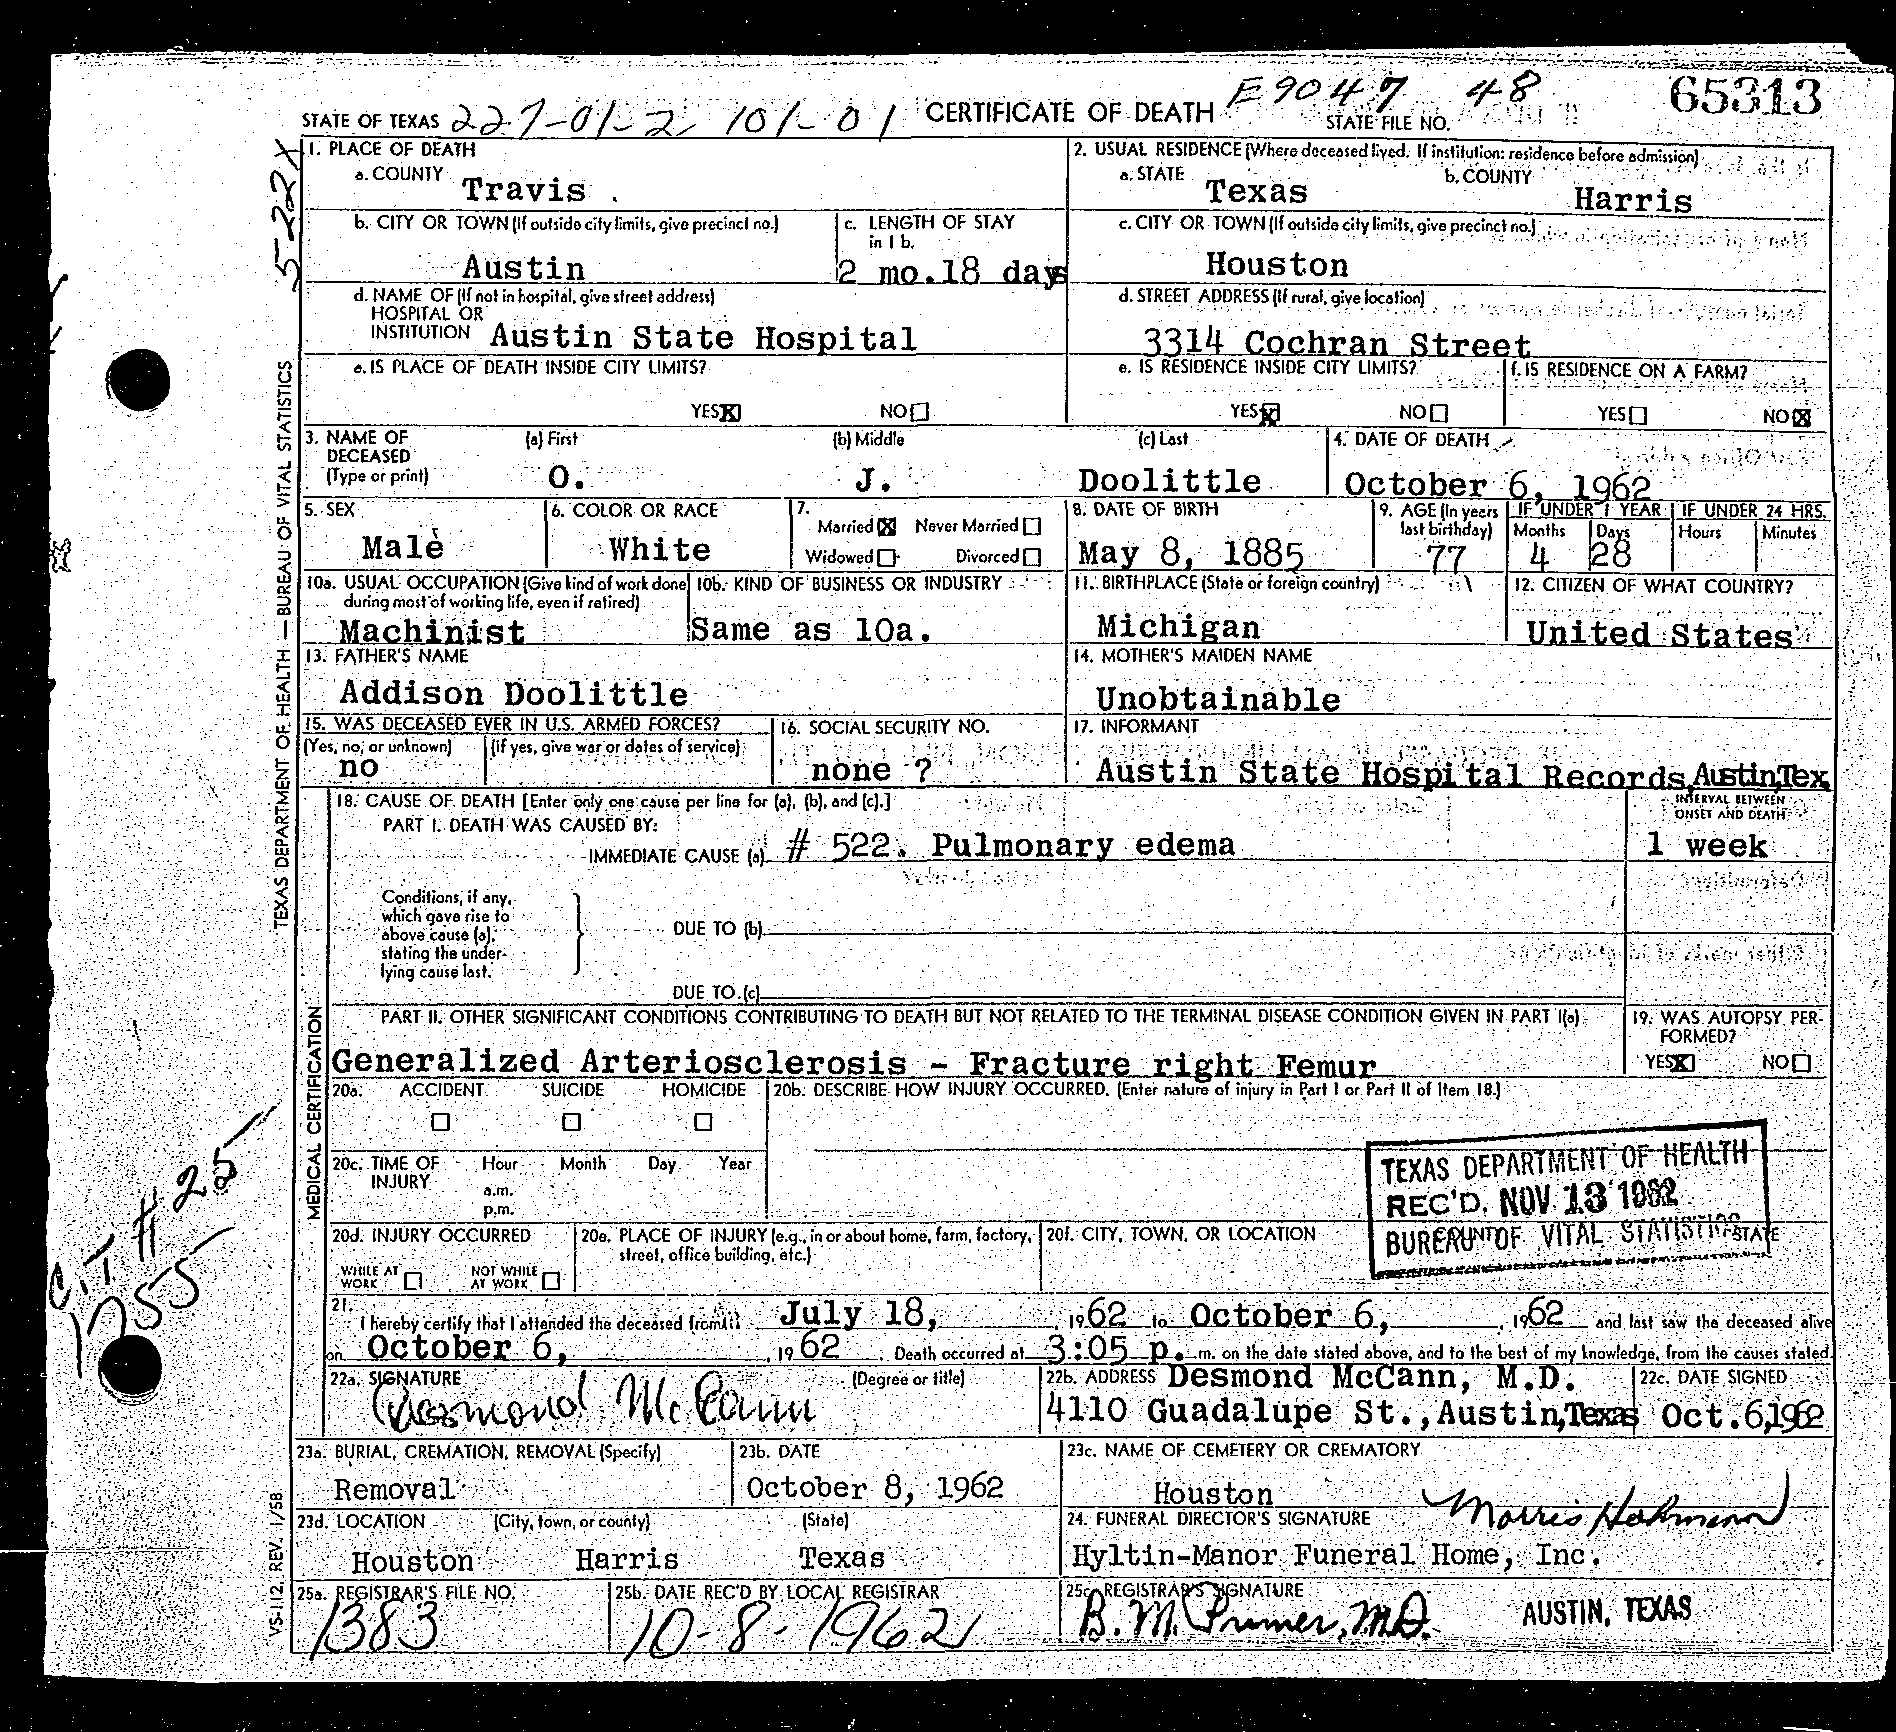 STATE OF TEXAS 227-01-2 101-01 CERTIFICATE OF DEATH E9047 48 STATE FILE NO. 65313
522X
1. PLACE OF DEATH
a. COUNTY Travis
2. USUAL RESIDENCE (Where deceased lived. If institution: residence before admission)
a. STATE Texas b. COUNTY Harris
b. CITY OR TOWN (If outside city limits, give precinct no.) Austin
c. LENGTH OF STAY in 1 b. 2 mo.18 days
c. CITY OR TOWN (If outside city limits, give precinct no.) Houston
d. NAME OF (If not in hospital, give street address)
HOSPITAL OR
INSTITUTION Austin State Hospital
d. STREET ADDRESS (If rural, give location)
3314 Cochran Street
e. IS PLACE OF DEATH INSIDE CITY LIMITS?
YES X NO
e. IS RESIDENCE INSIDE CITY LIMITS?
YES X NO
f. IS RESIDENCE ON A FARM?
YES NO X
3. NAME OF DECEASED (Type or print)
(a) First O. (b) Middle J. (c) Last Doolittle
4. DATE OF DEATH October 6, 1962
5. SEX Male
6. COLOR OR RACE White
7. Married X Never Married
Widowed Divorced
8. DATE OF BIRTH May 8, 1885
9. AGE (In years last birthday) 77
IF UNDER 1 YEAR Months 4 Days 28
IF UNDER 24 HRS. Hours Minutes
10a. USUAL OCCUPATION (Give kind of work done during most of working life, even if retired)
Machinist
10b. KIND OF BUSINESS OR INDUSTRY
Same as 10a.
11. BIRTHPLACE (State or foreign country)
Michigan
12. CITIZEN OF WHAT COUNTRY?
United States
13. FATHER'S NAME
Addison Doolittle
14. MOTHER'S MAIDEN NAME
Unobtainable
15. WAS DECEASED EVER IN U.S. ARMED FORCES?
(Yes, no, or unknown) (If yes, give war or dates of service)
no
16. SOCIAL SECURITY NO.
none ?
17. INFORMANT
Austin State Hospital Records, Austin, Tex
TEXAS DEPARTMENT OF HEALTH — BUREAU OF VITAL STATISTICS
MEDICAL CERTIFICATION
18. CAUSE OF DEATH [Enter only one cause per line for (a), (b), and (c).]
PART I. DEATH WAS CAUSED BY:
IMMEDIATE CAUSE (a) # 522. Pulmonary edema
INTERVAL BETWEEN ONSET AND DEATH
1 week
Conditions, if any, which gave rise to above cause (a), stating the underlying cause last.
DUE TO (b)
DUE TO (c)
PART II. OTHER SIGNIFICANT CONDITIONS CONTRIBUTING TO DEATH BUT NOT RELATED TO THE TERMINAL DISEASE CONDITION GIVEN IN PART I(a)
Generalized Arteriosclerosis - Fracture right Femur
19. WAS AUTOPSY PERFORMED?
YES X NO
20a. ACCIDENT SUICIDE HOMICIDE
20b. DESCRIBE HOW INJURY OCCURRED. (Enter nature of injury in Part I or Part II of Item 18.)
20c. TIME OF INJURY Hour Month Day Year
a.m.
p.m.
TEXAS DEPARTMENT OF HEALTH
REC'D. NOV 13 1962
BUREAU OF VITAL STATISTICS
20d. INJURY OCCURRED
WHILE AT WORK NOT WHILE AT WORK
20e. PLACE OF INJURY (e.g., in or about home, farm, factory, street, office building, etc.)
20f. CITY, TOWN, OR LOCATION COUNTY STATE
# 25
1755
21. I hereby certify that I attended the deceased from July 18, 1962 to October 6, 1962 and last saw the deceased alive
on October 6, 1962. Death occurred at 3:05 p. m. on the date stated above, and to the best of my knowledge, from the causes stated.
22a. SIGNATURE (Degree or title)
Desmond McCann
22b. ADDRESS Desmond McCann, M.D.
4110 Guadalupe St., Austin, Texas
22c. DATE SIGNED
Oct. 6, 1962
23a. BURIAL, CREMATION, REMOVAL (Specify)
Removal
23b. DATE
October 8, 1962
23c. NAME OF CEMETERY OR CREMATORY
Houston
23d. LOCATION (City, town, or county) (State)
Houston Harris Texas
24. FUNERAL DIRECTOR'S SIGNATURE
Hyltin-Manor Funeral Home, Inc.
25a. REGISTRAR'S FILE NO.
1383
25b. DATE REC'D BY LOCAL REGISTRAR
10-8-1962
25c. REGISTRAR'S SIGNATURE
B. M. Primer, M.D. AUSTIN, TEXAS
VS-112, REV. 1/58